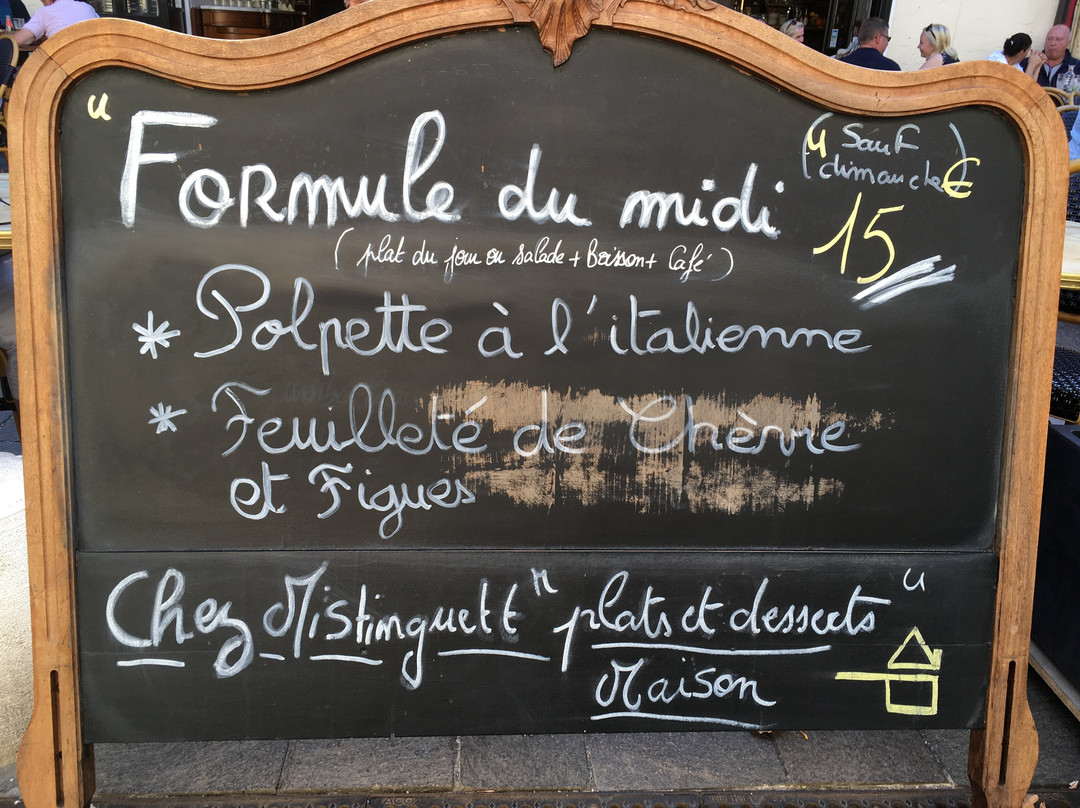 "Formule du midi
(Sauf
dimanche)
15€
(plat du jour ou salade + Boisson + Café)
* Polpette à l'italienne
* Feuilleté de Chèvre
et Figues
Chez Mistinguett" plats et desserts"
Maison